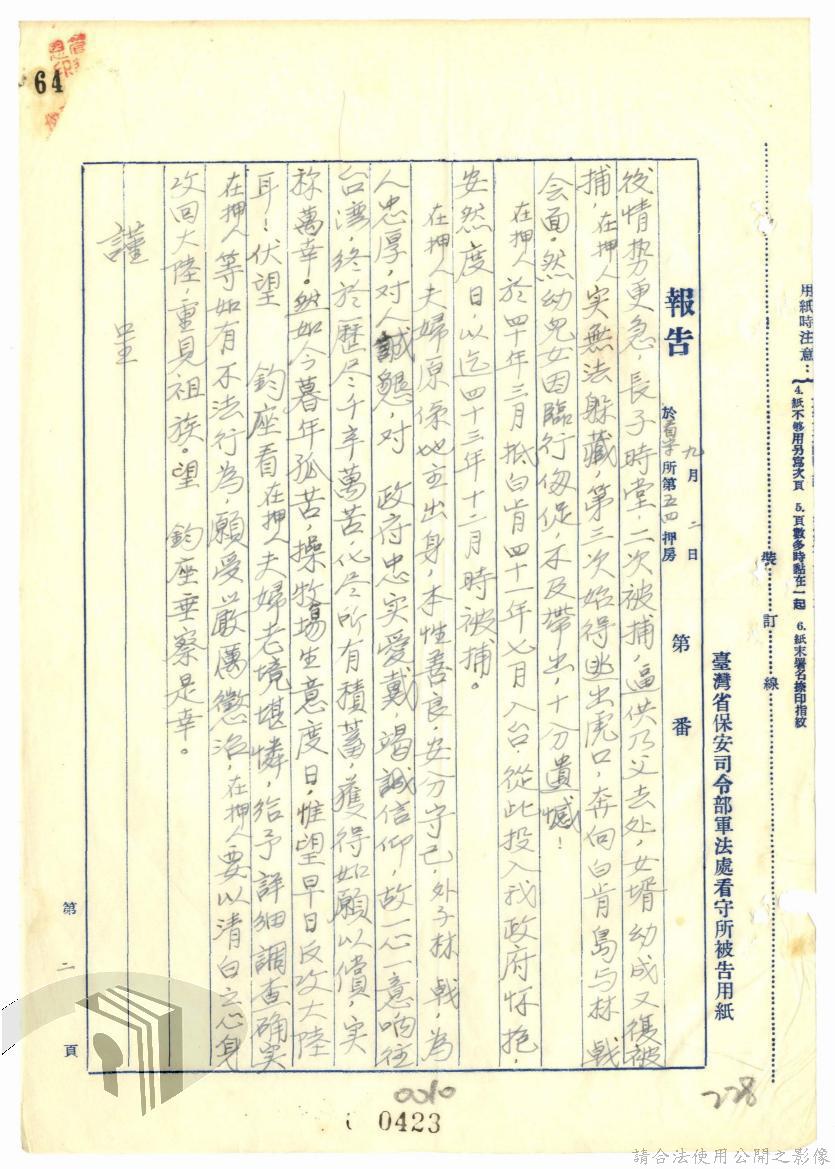 64
用紙時注意：
4. 紙不够用另寫次頁 5. 頁數多時黏在一起 6. 紙末署名捺印指紋
裝訂線
臺灣省保安司令部軍法處看守所被告用紙
報告
九月二日
於看守所第五四押房
第 番
後情势更急，長子時堂，二次被捕，逼供乃父去处，女壻幼成又復被
捕，在押人实無法躲藏，第三次始得逃出虎口，奔向白肯島与林戟
会面，然幼兒女因臨行匆促，不及帶出，十分遺憾！
在押人於四十年三月抵白肯四十一年七月入台，從此投入我政府怀抱，
安然度日，以迄四十三年十二月時被捕。
在押人夫婦原係地主出身，本性善良，安分守己，外子林戟，為
人忠厚，对人誠懇，对 政府忠实爱戴，竭誠信仰，故一心一意响往
台湾，終於歷尽千辛萬苦，化尽所有積蓄，獲得如願以償，实
称萬幸。然如今暮年孤苦，操牧場生意度日，惟望早日反攻大陸
耳！伏望 鈞座看在押人夫婦老境堪憐，給予詳細調查确实
在押人等如有不法行為，願受嚴厲懲治，在押人要以清白之心身
攻回大陸，重見祖族。望 鈞座垂察是幸。
謹呈
第二頁
0010
0423
228
請合法使用公開之影像